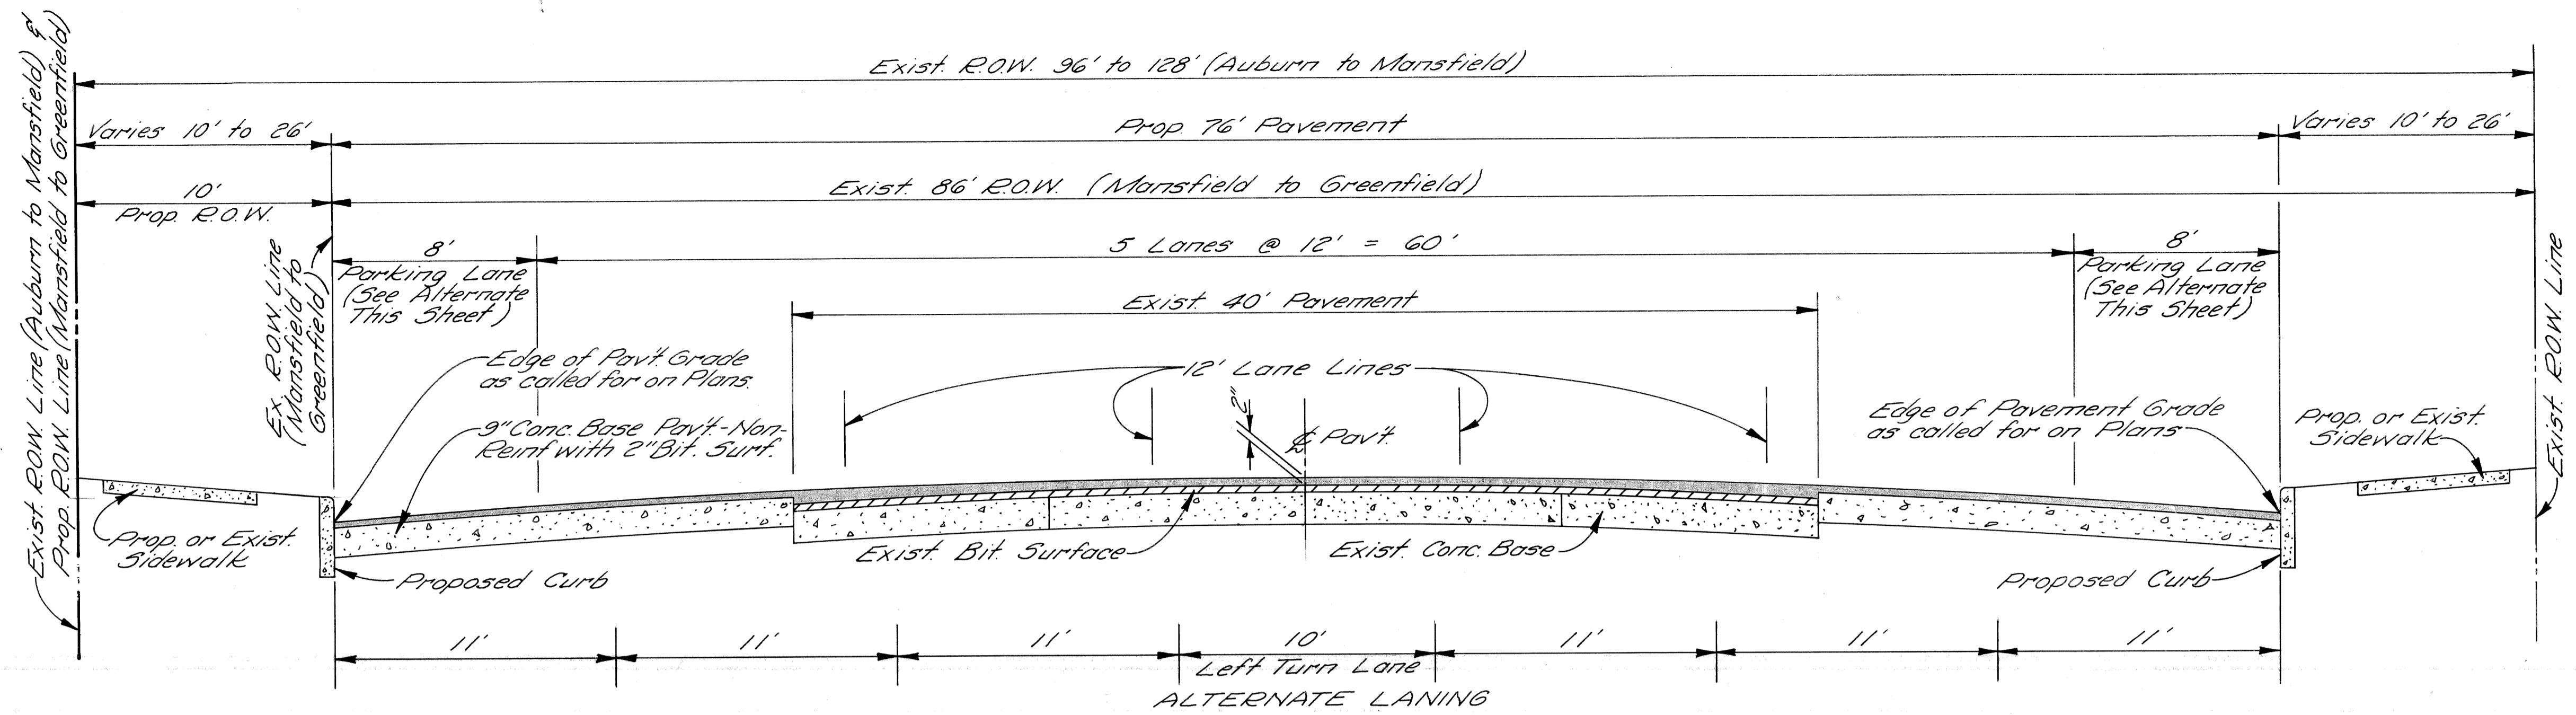 Exist. R.O.W. Line (Auburn to Mansfield) &
Prop. R.O.W. Line (Mansfield to Greenfield)
Exist. R.O.W. 96' to 128' (Auburn to Mansfield)
Varies 10' to 26'
Prop. 76' Pavement
Varies 10' to 26'
10'
Prop. R.O.W.
Exist. 86' R.O.W. (Mansfield to Greenfield)
Ex. R.O.W. Line
(Mansfield to
Greenfield)
8'
Parking Lane
(See Alternate
This Sheet)
5 Lanes @ 12' = 60'
8'
Parking Lane
(See Alternate
This Sheet)
Exist. R.O.W. Line
Exist. 40' Pavement
Edge of Pav't. Grade
as called for on Plans.
12' Lane Lines
2"
℄ Pav't.
9" Conc. Base Pav't.-Non-
Reinf with 2" Bit. Surf.
Edge of Pavement Grade
as called for on Plans
Prop. or Exist.
Sidewalk
Prop. or Exist.
Sidewalk
Exist. Bit. Surface
Exist. Conc. Base
Proposed Curb
Proposed Curb
11'
11'
11'
10'
Left Turn Lane
11'
11'
11'
ALTERNATE LANING